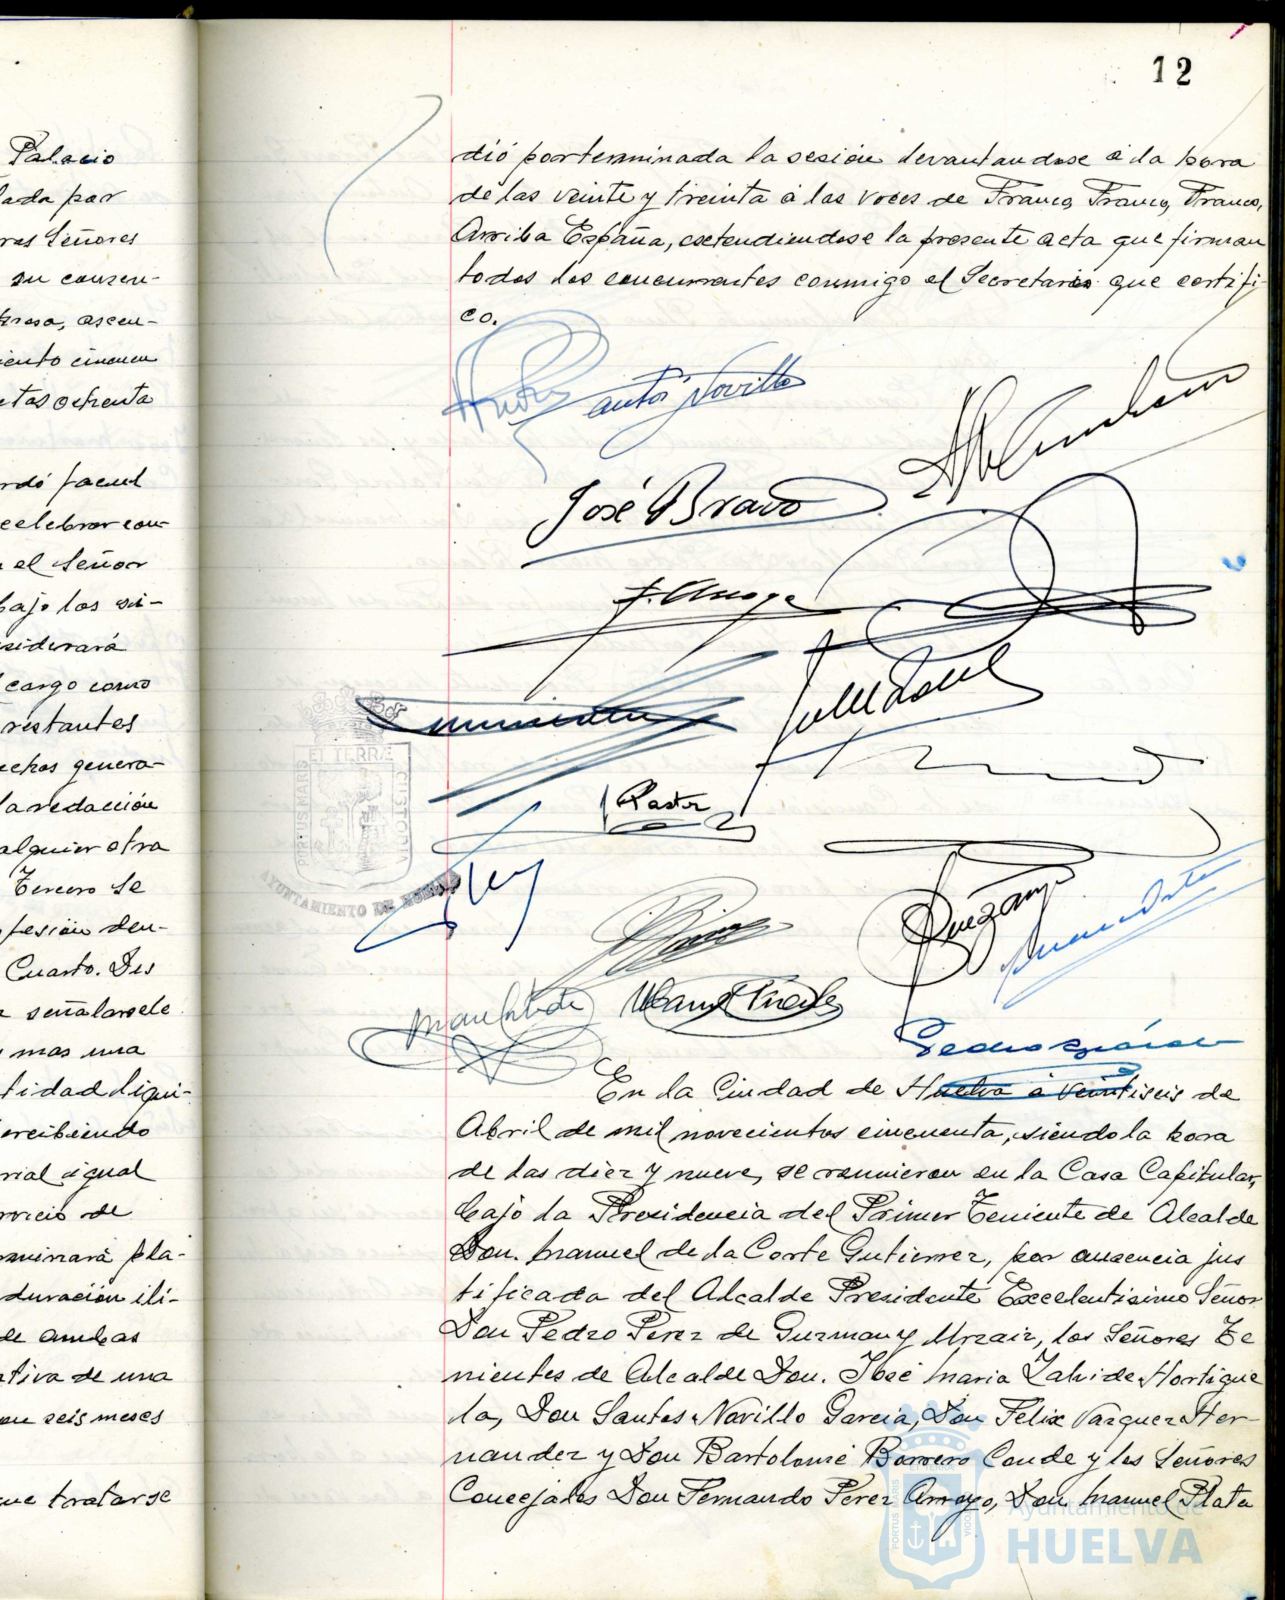 Palacio
lada por
ras Señores
su consen-
ascen-
iento cincuen
etas ochenta
rdó facul
celebrar con-
el Señor
bajo las si-
siderará
cargo como
restantes
echos genera-
la redacción
alquier otra
Tercero Se
fesión den-
Cuarto. Des
señalarsele
mas una
tidad liqui-
ercibiendo
rial igual
rvicio de
rminará pla-
duración ili-
de ambas
ativa de una
on seis meses
que tratarse
12
dió por terminada la sesión levantandose á la hora
de las veinte y treinta á las voces de Franco, Franco, Franco,
Arriba España, extendiendose la presente acta que firman
todos los concurrentes conmigo el Secretario que certifi-
co.
Novillo
José Bravo
Pastor
ET TERRÆ
PORTUS MARIS
CUSTODIA
AYUNTAMIENTO DE HUELVA
En la Ciudad de Huelva á veintiseis de
Abril de mil novecientos cincuenta, siendo la hora
de las diez y nueve, se reunieron en la Casa Capitular,
bajo la Presidencia del Primer Teniente de Alcalde
Don. Manuel de la Corte Gutierrez, por ausencia jus
tificada del Alcalde Presidente Excelentisimo Señor
Don Pedro Perez de Guzman y Urzaiz, los Señores Te
nientes de Alcalde Don. José Maria Zalvide Hortigue
la, Don Santos Novillo Garcia, Don Felix Vazquez Her-
nandez y Don Bartolomé Borrero Conde y los Señores
Concejales Don Fernando Perez Arroyo, Don Manuel Plata
Ayuntamiento de
HUELVA